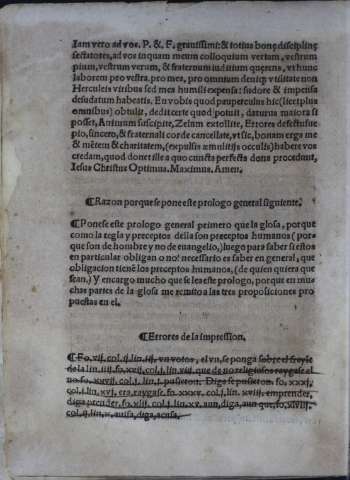 Iam vero ad vos. P. & F. grauissimi: & totius bonę disciplinę
sectatores, ad vos inquam meum colloquium vertam, vestrum
pium, vestrum verum, & fraternum iuditium querens, vt hunc
laborem pro vestra. pro mea, pro omnium deniq; vtilitate non
Herculeis viribus sed mea humili expensa: sudore & impensa
desudatum habeatis. En vobis quod pauperculus hic (licet plus
omnibus) obtulit, dedit certe quod potuit, daturus maiora si
posset, Animum suscipite, Zelum extollite, Errores defectusque
pio, sincero, & fraternali corde cancellate, vt sic, bonam erga me
& mētem & charitatem, (expulsis a multis occulis) habere vos
credam, quod donet ille a quo cuncta perfecta dona procedunt,
Iesus Christus Optimus. Maximus. Amen.
¶Razon porque se pone este prologo general siguiente.
¶Ponese este prologo general primero que la glosa, porque
como la regla y preceptos della son preceptos humanos (por-
que son de hombre y no de euangelio,) luego para saber si estos
en particular obligan o no: necessario es saber en general, que
obligacion tienē los preceptos humanos, (de quien quiera que
sean,) Y encargo mucho que se lea este prologo, porque en mu
chas partes de la glosa me remito a las tres proposiciones pro
puestas en el.
¶Errores de la impression.
¶Fo. vij. col. ij. lin. iij. vn votos, el vn, se ponga sobre el freyle
de la lin. iiij. fo. xvij. col. j. lin. viij. que de no religiosos raygase el
no. fo. xxvij. col. j. lin. j. pusieron. Diga se pusieron. fo. xxxj.
col. j. lin. xvj. era, raygase. fo. xxxv. col. j. lin. xviij. emprender,
diga prender. fo. xlij. col. j. lin. xv. aun, diga, aun que, fo. xlviij.
col. ij. lin. x. auisa, diga, acusa.